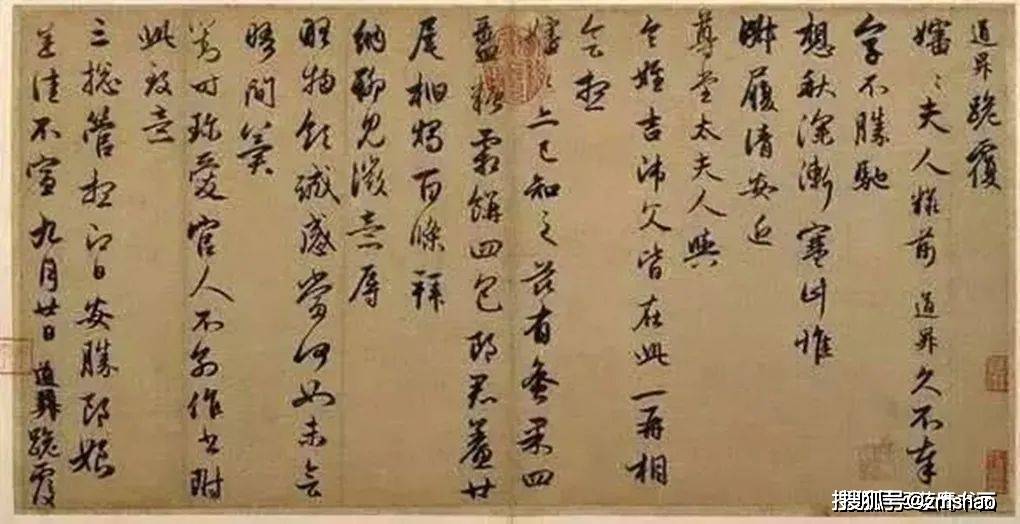 道昇跪覆
嬸〻夫人粧前 道昇久不奉
字不勝馳
想秋深漸寒計惟
淑履清安近
尊堂太夫人與
令姪吉師父皆在此一再相
會想
嬸〻亦已知之茲有蜜果四
盝糖霜餅四包郎君鯗廿
尾柏燭百條拜
納聊見微意辱
略物領誠感當何如未會
晤間冀
對時珍愛官人不別作書附
此致意
三總管想即日安勝郎娘
悉佳不宣 九月廿日 道昇跪覆
搜狐号@zmshao